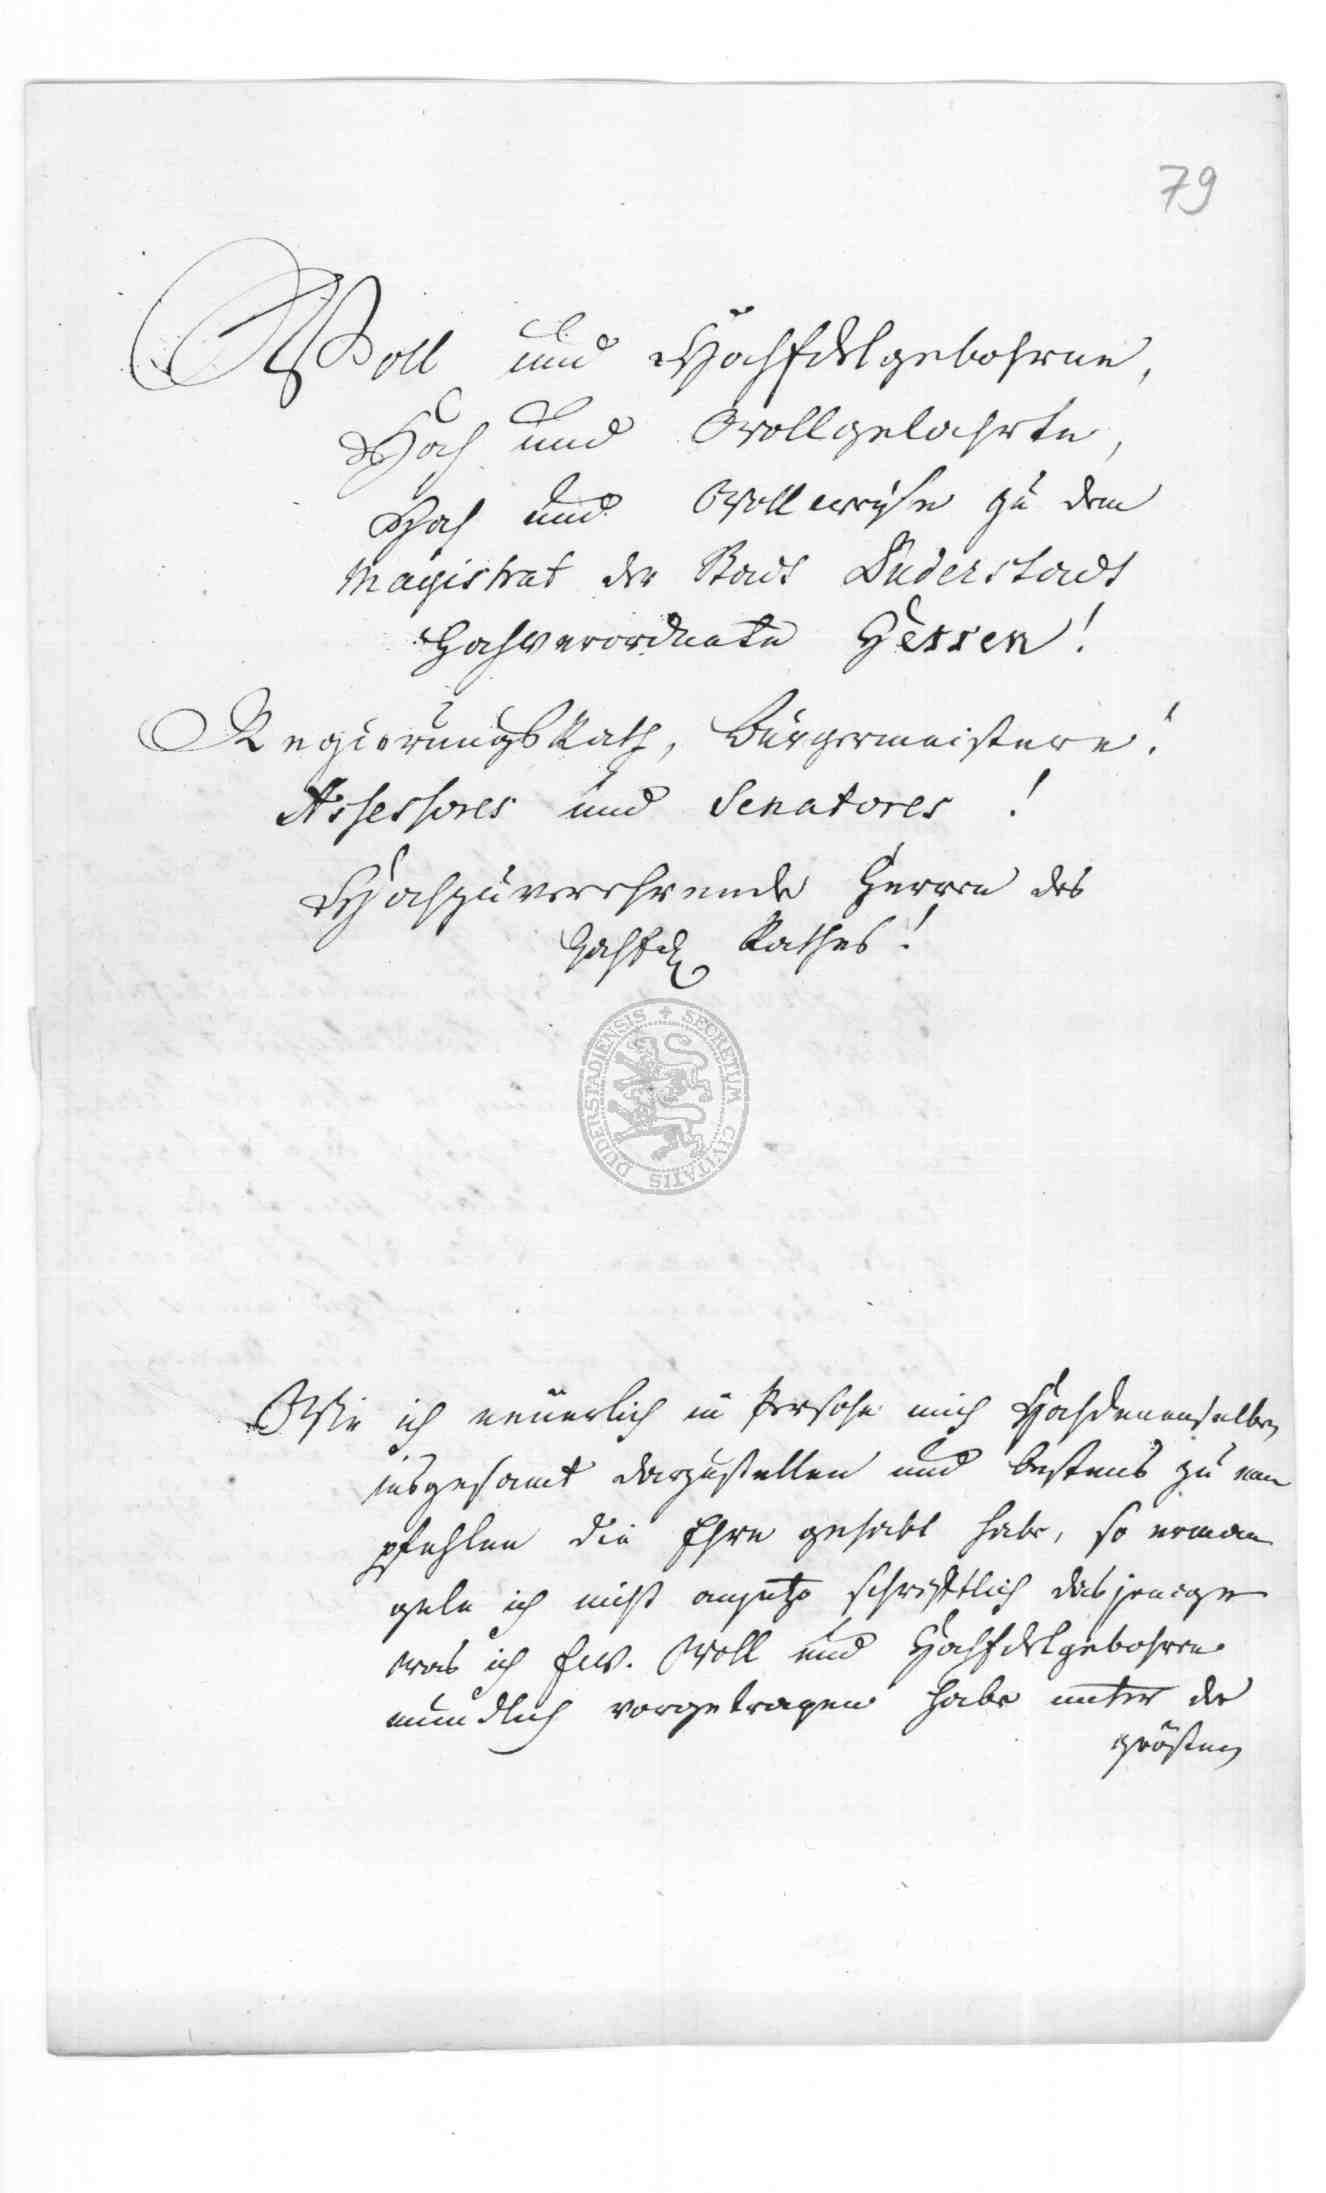 79
Woll und HochEdelgebohrne,
Hoch und Wollgelahrte,
Hoch und Wollweyse zu dem
Magistrat der Stadt Duderstadt
Hochverordnete Herren!
RegierungsRath, Bürgermeistere!
Assessores und Senatores!
Hochzuverehrende Herren des
Rathes!
DUDERSTADIENSIS + SECRETUM CIVITATIS
Wie ich neuerlich in Persohn mich Hochdenenselben
insgesamt darzustellen und bestens zu em
pfehlen die Ehre gehabt habe, so erman
gele ich nicht anjetzo schrifftlich dasjenige
was ich Ew. Woll und HochEdelgebohren
mündlich vorgetragen habe unter der
grösten